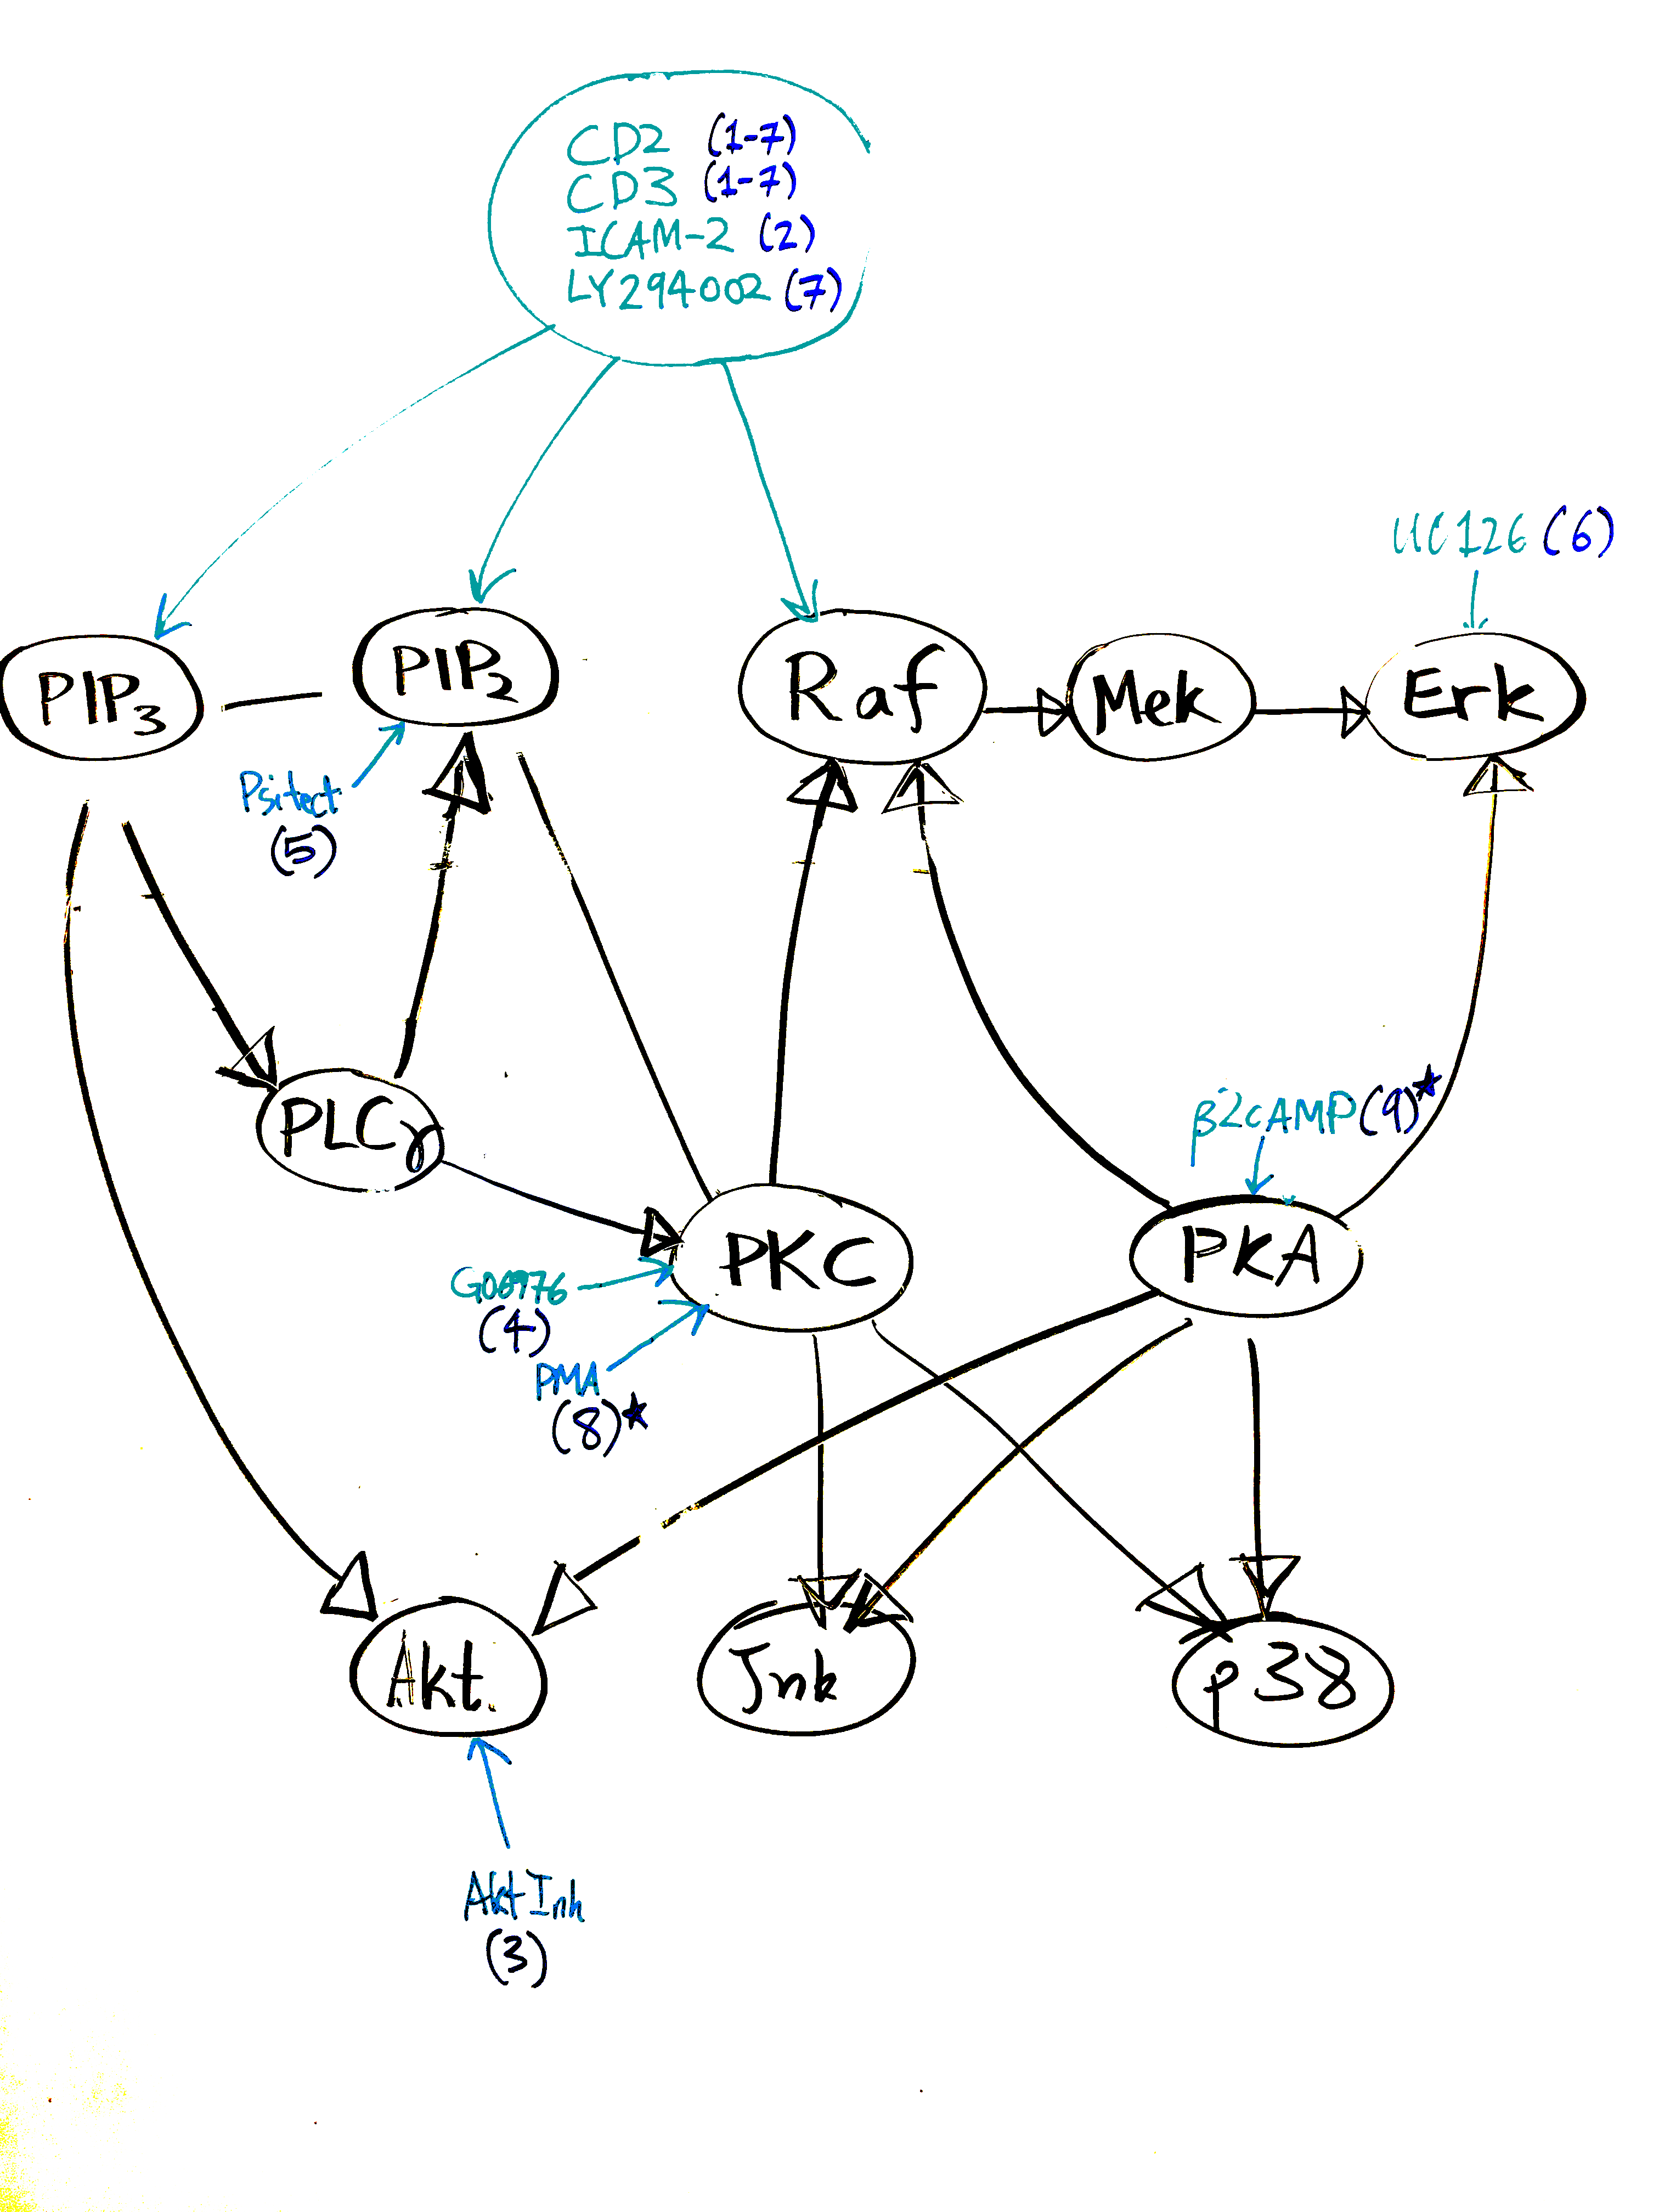 CD2 (1-7)
CD3 (1-7)
ICAM-2 (2)
LY294002 (7)
UC126 (6)
PIP3
PIP2
Raf
Mek
Erk
Psitect
(5)
PLCγ
β2cAMP (9)*
PKC
PKA
G06976
(4)
PMA
(8)*
Akt
Jnk
p38
Akt Inh
(3)